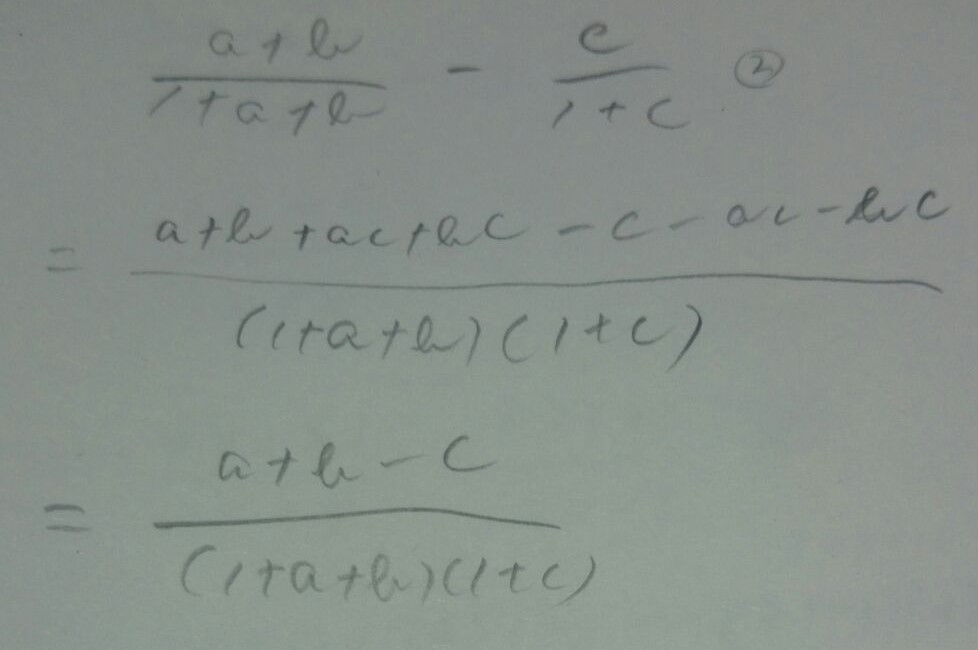 a+b/1+a+b - c/1+c ②
= a+b+ac+bc-c-ac-bc/(1+a+b)(1+c)
= a+b-c/(1+a+b)(1+c)